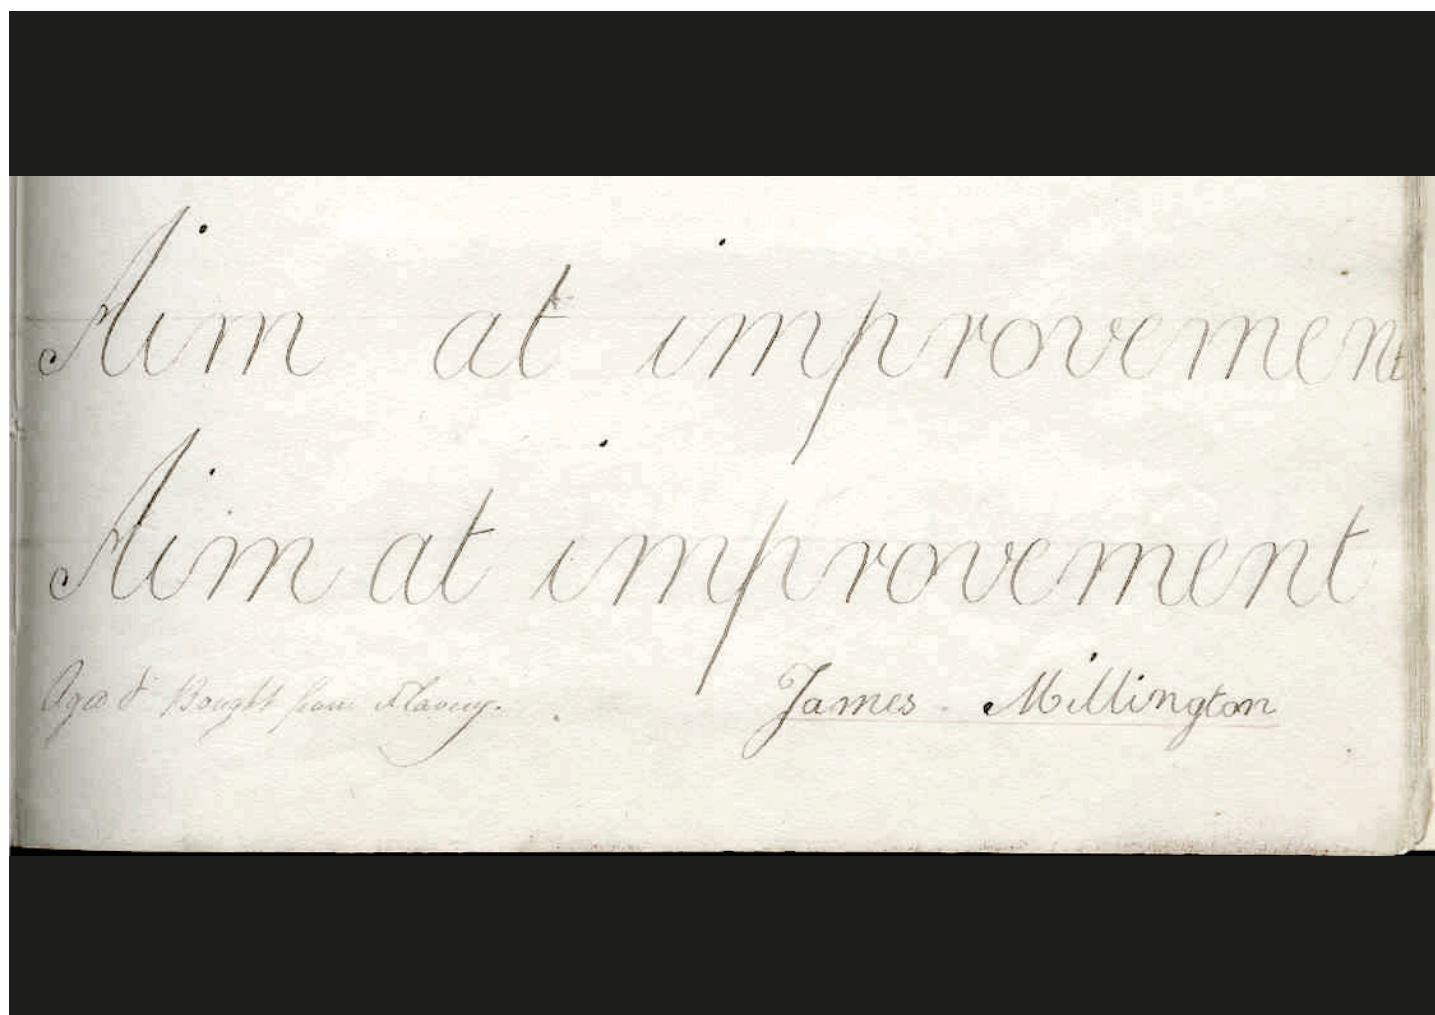 Aim at improvement
Aim at improvement
Aged 8 Bought from Slavery. James Millington